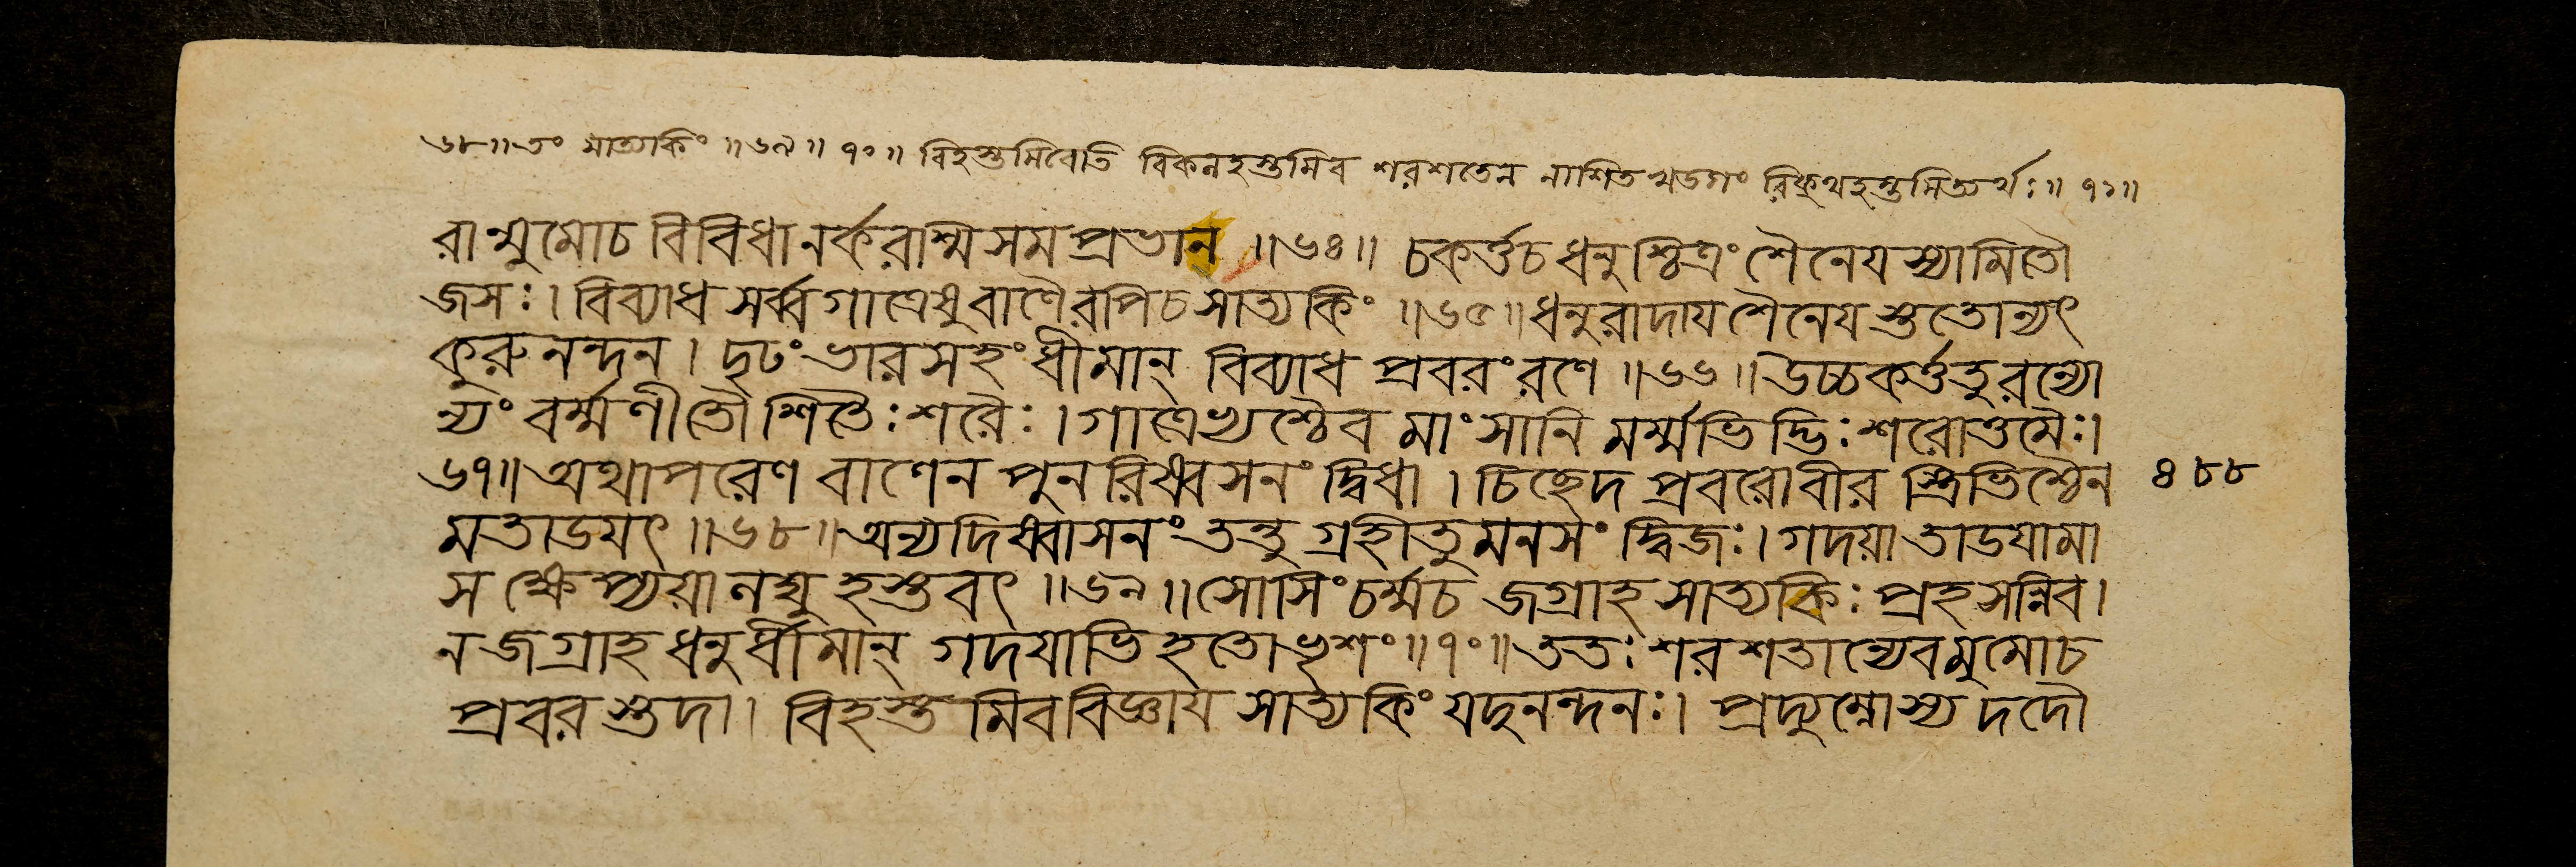 ৬৮॥ তং সাত্যকিং ॥৬৯॥ ৭০॥ বিহস্তমিবেতি বিকলহস্তমিব শরশতেন নাশিতখড্গং রিক্থহস্তমিত্যর্থঃ॥ ৭১॥
রান্মুমোচ বিবিধানর্করশ্মিসমপ্রভান ॥৬৪॥ চকর্ত্ত চ ধনুশ্চিত্রং শৈনেযস্যামিতৌ
জসঃ। বিব্যাধ সর্ব্বগাত্রেষু বাণৈরপি চ সাত্যকিং ॥৬৫॥ ধনুরাদায শৈনেযস্ততোন্যৎ
কুরুনন্দন। দৃঢং ভারসহং ধীমান্ বিব্যাধ প্রবরং রণে ॥৬৬॥ উচ্চকর্ত্ততুরন্যো
ন্যং বর্ম্মণী তৌ শিতৈঃ শরৈঃ। গাত্রেভ্যশ্চৈব মাংসানি মর্ম্মভিদ্ভিঃ শরোত্তমৈঃ।
৬৭॥ অথাপরেণ বাণেন পুনরিষ্বসনং দ্বিধা। চিচ্ছেদ প্রবরো বীর স্ত্রিভিশ্চৈন ৪৮৮
মতাডযৎ ॥৬৮॥ অন্যদিষ্বাসনং তন্তু গ্রহীতুমনসং দ্বিজঃ। গদয়া তাডযামা
স ক্ষেপ্যয়ানঘ্যুহস্তবৎ ॥৬৯॥ সোসিং চর্ম্ম চ জগ্রাহ সাত্যকিঃ প্রহসন্নিব।
ন জগ্রাহ ধনুর্ধীমান্ গদযাভিহতো ভৃশং ॥৭০॥ ততঃ শরশতান্যেব মুমোচ
প্রবরস্তদা। বিহস্তমিব বিজ্ঞায সাত্যকিং যদুনন্দনঃ। প্রদ্যুম্নোস্য দদৌ